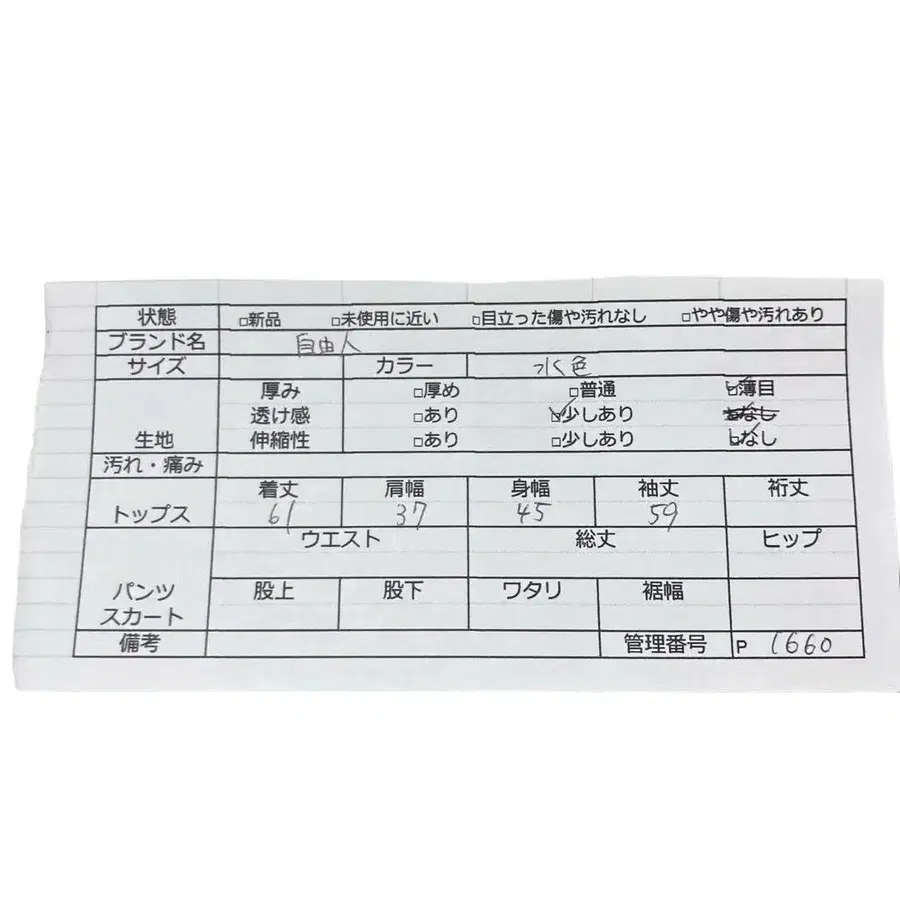 状態 □新品 □未使用に近い □目立った傷や汚れなし □やや傷や汚れあり
ブランド名 自由人
サイズ カラー 水色
厚み □厚め □普通 ☑薄目
透け感 □あり ☑少しあり □なし
生地 伸縮性 □あり □少しあり ☑なし
汚れ・痛み
着丈 肩幅 身幅 袖丈 裄丈
トップス 61 37 45 59
ウエスト 総丈 ヒップ
パンツ 股上 股下 ワタリ 裾幅
スカート
備考 管理番号 P 1660